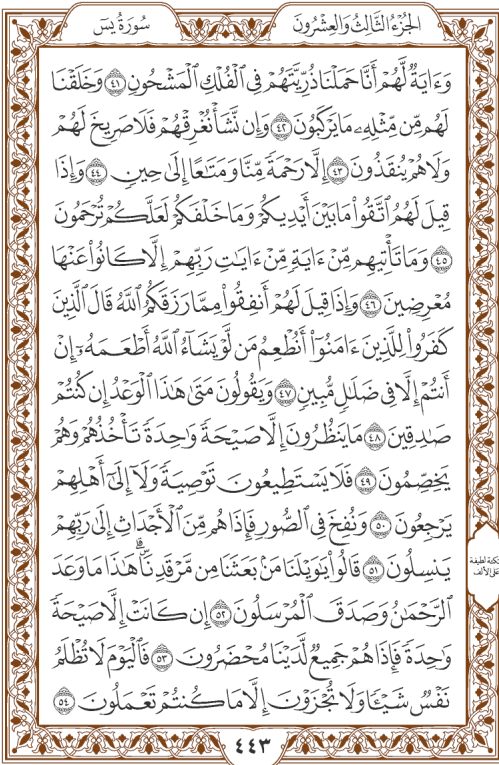 سُورَةُ يسٓ
الجُزْءُ الثَّالِثُ وَالعِشْرُونَ
وَءَايَةٌ لَّهُمْ أَنَّا حَمَلْنَا ذُرِّيَّتَهُمْ فِي ٱلْفُلْكِ ٱلْمَشْحُونِ ٤١ وَخَلَقْنَا
لَهُم مِّن مِّثْلِهِۦ مَا يَرْكَبُونَ ٤٢ وَإِن نَّشَأْ نُغْرِقْهُمْ فَلَا صَرِيخَ لَهُمْ
وَلَا هُمْ يُنقَذُونَ ٤٣ إِلَّا رَحْمَةً مِّنَّا وَمَتَٰعًا إِلَىٰ حِينٍ ٤٤ وَإِذَا
قِيلَ لَهُمُ ٱتَّقُوا۟ مَا بَيْنَ أَيْدِيكُمْ وَمَا خَلْفَكُمْ لَعَلَّكُمْ تُرْحَمُونَ
٤٥ وَمَا تَأْتِيهِم مِّنْ ءَايَةٍ مِّنْ ءَايَٰتِ رَبِّهِمْ إِلَّا كَانُوا۟ عَنْهَا
مُعْرِضِينَ ٤٦ وَإِذَا قِيلَ لَهُمْ أَنفِقُوا۟ مِمَّا رَزَقَكُمُ ٱللَّهُ قَالَ ٱلَّذِينَ
كَفَرُوا۟ لِلَّذِينَ ءَامَنُوٓا۟ أَنُطْعِمُ مَن لَّوْ يَشَآءُ ٱللَّهُ أَطْعَمَهُۥٓ إِنْ
أَنتُمْ إِلَّا فِي ضَلَٰلٍ مُّبِينٍ ٤٧ وَيَقُولُونَ مَتَىٰ هَٰذَا ٱلْوَعْدُ إِن كُنتُمْ
صَٰدِقِينَ ٤٨ مَا يَنظُرُونَ إِلَّا صَيْحَةً وَٰحِدَةً تَأْخُذُهُمْ وَهُمْ
يَخِصِّمُونَ ٤٩ فَلَا يَسْتَطِيعُونَ تَوْصِيَةً وَلَآ إِلَىٰٓ أَهْلِهِمْ
يَرْجِعُونَ ٥٠ وَنُفِخَ فِي ٱلصُّورِ فَإِذَا هُم مِّنَ ٱلْأَجْدَاثِ إِلَىٰ رَبِّهِمْ
يَنسِلُونَ ٥١ قَالُوا۟ يَٰوَيْلَنَا مَنۢ بَعَثَنَا مِن مَّرْقَدِنَاۜۗ هَٰذَا مَا وَعَدَ
ٱلرَّحْمَٰنُ وَصَدَقَ ٱلْمُرْسَلُونَ ٥٢ إِن كَانَتْ إِلَّا صَيْحَةً
وَٰحِدَةً فَإِذَا هُمْ جَمِيعٌ لَّدَيْنَا مُحْضَرُونَ ٥٣ فَٱلْيَوْمَ لَا تُظْلَمُ
نَفْسٌ شَيْـًٔا وَلَا تُجْزَوْنَ إِلَّا مَا كُنتُمْ تَعْمَلُونَ ٥٤
سكتة لطيفة
على الألف
٤٤٣